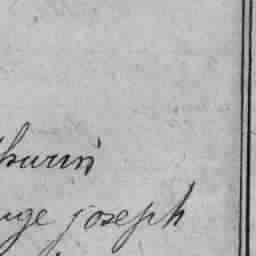 thurin
uge joseph